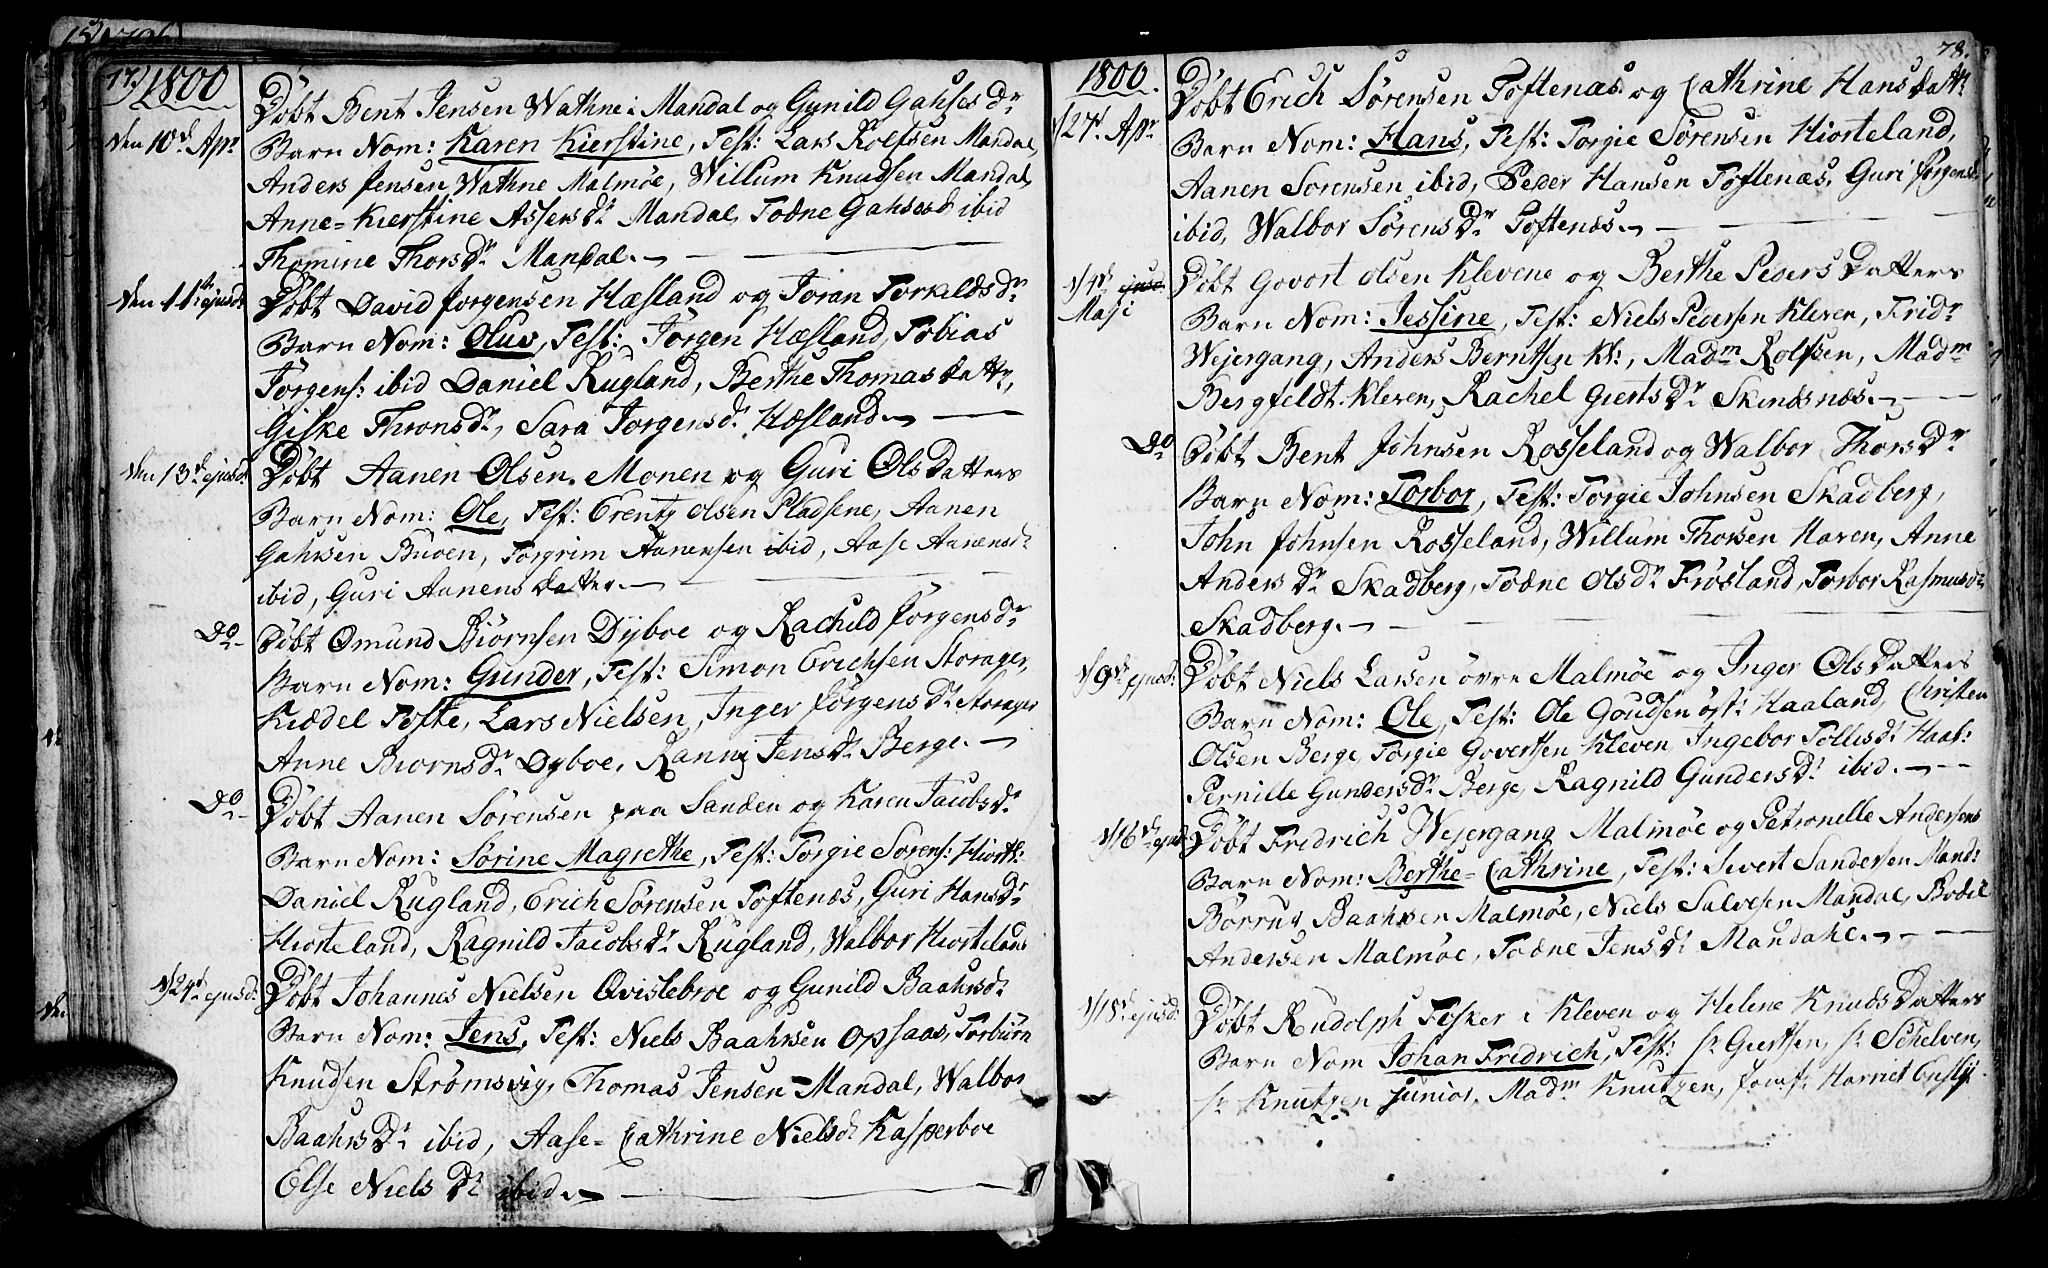 17) 1800
Den 10de Apr.
Döbt Bent Jensen Wathne i Mandal og Gunild Gahses Dr
Barn Nom: Karen Kierstine, Test: Lars Rolfsen Mandal,
Anders Jensen Wathne Malmöe, Willum Knudsen Mandal,
Anne-Kierstine Assers Dr Mandal, Todne Gahsesd ibid
Thomine Thors Dr Mandal.
Den 11te ejusd:
Döbt David Jorgensen Hæsland og Joran Torkildsdr
Barn Nom: Oluv, Test: Jörgen Hæsland, Tobias
Jörgens: ibid Daniel Rugland, Berthe Thomasdattr,
Giske Thronsdr, Sara Jorgensdr Hæsland
Den 13de ejusd:
Döbt Aanen Olsen Monen og Guri Ols Datters
Barn Nom: Ole, Test: Erentz Olsen Pladsene, Aanen
Gahrsen Buoen, Torgrim Aanensen ibid, Aase Aanensdr
ibid, Guri Aanensdatter.
Do
Döbt Omund Biörnsen Dyboe og Rachild Jörgensdr
Barn Nom: Gunder, Test: Simon Erichsen Storager,
Kiædel Tofte, Lars Nielsen, Inger Jörgens Dr Storager
Anne Biornsdr Dyboe, Ranny Jensdr Berge.
Do
Döbt Aanen Sörensen paa Sanden og Karen Jacobsdr
Barn Nom: Sörine Magrethe, Test: Torgie Sorens: Hiorth:
Daniel Rugland, Erich Sörensen Toftenæs, Guri Hansdr
Hiorteland, Ragnild Jacobsdr Rugland, Walbor Hiorteland
d/24d ejusd:
Döbt Johannes Nielsen Qvislebroe og Gunild Baahrsdr
Barn Nom: Jens, Test: Niels Baahrsen Opsaas, Torbiörn
Knudsen Strömsvig, Thomas Jensen Mandal, Walbor
Baahrs Dr ibid, Aase-Cathrine Nielsdr Kasperboe
Else Niels Dr ibid.
78.
1800.
d/27d Apr
Döbt Erich Sörensen Toftenæs og Cathrine Hansdattr
Barn Nom: Hans, Test: Torgie Sörensen Hiorteland,
Aanen Sorensen ibid, Peder Hansen Toftenæs, Guri Jörgensdr
ibid, Walbor Sörens Dr Toftenæs.
d/4de Maji
Döbt Govort Olsen Klevene og Berthe Peders Datters
Barn Nom: Jessine, Test: Niels Pedersen Kleven, Fridr
Wejergang, Anders Berntsen Kl:, Madm Rolfsen, Madm
Bergfeldt Kleven, Rachel Giertsdr Skinsnæs.
Do
Döbt Bent Johnsen Rosseland og Walbor Thors Dr
Barn Nom: Torbor, Test: Torgie Johnsen Skadberg,
John Johnsen Rosseland, Willum Thorsen Haven, Anne
Anders Dr Skadberg, Todne Olsdr Frösland, Torbor Rasmusdr
Skadberg.
d/9de ejusd:
Döbt Niels Larsen övre Malmöe og Inger Ols Datters
Barn Nom: Ole, Test: Ole Goudsen öst: Haaland, Christen
Olsen Berge, Torgie Govertsen Kleven, Ingebor Tollisdr Haal:
Pernille Gundersdr Berge, Ragnild Gundersdr ibid.
d/16de ejusd
Döbt Fridrich Wejergang Malmöe og Petronelle Andersens
Barn Nom: Berthe-Cathrine, Test: Sivert Sandersen Mand:
Börrut Baahrsen Malmöe, Niels Salvesen Mandal, Bodil
Andersen Malmöe, Todne Jens Dr Mandahl.
d/18de ejusd:
Döbt Rudolph Tesker i Kleven og Helene Knuds Datters
Barn Nom Johan Fridrich, Test: Sr Giertsen, Sr Schelven,
Sr Knutzen junior, Madm Knutzen, Jomf: Harriet Ensly